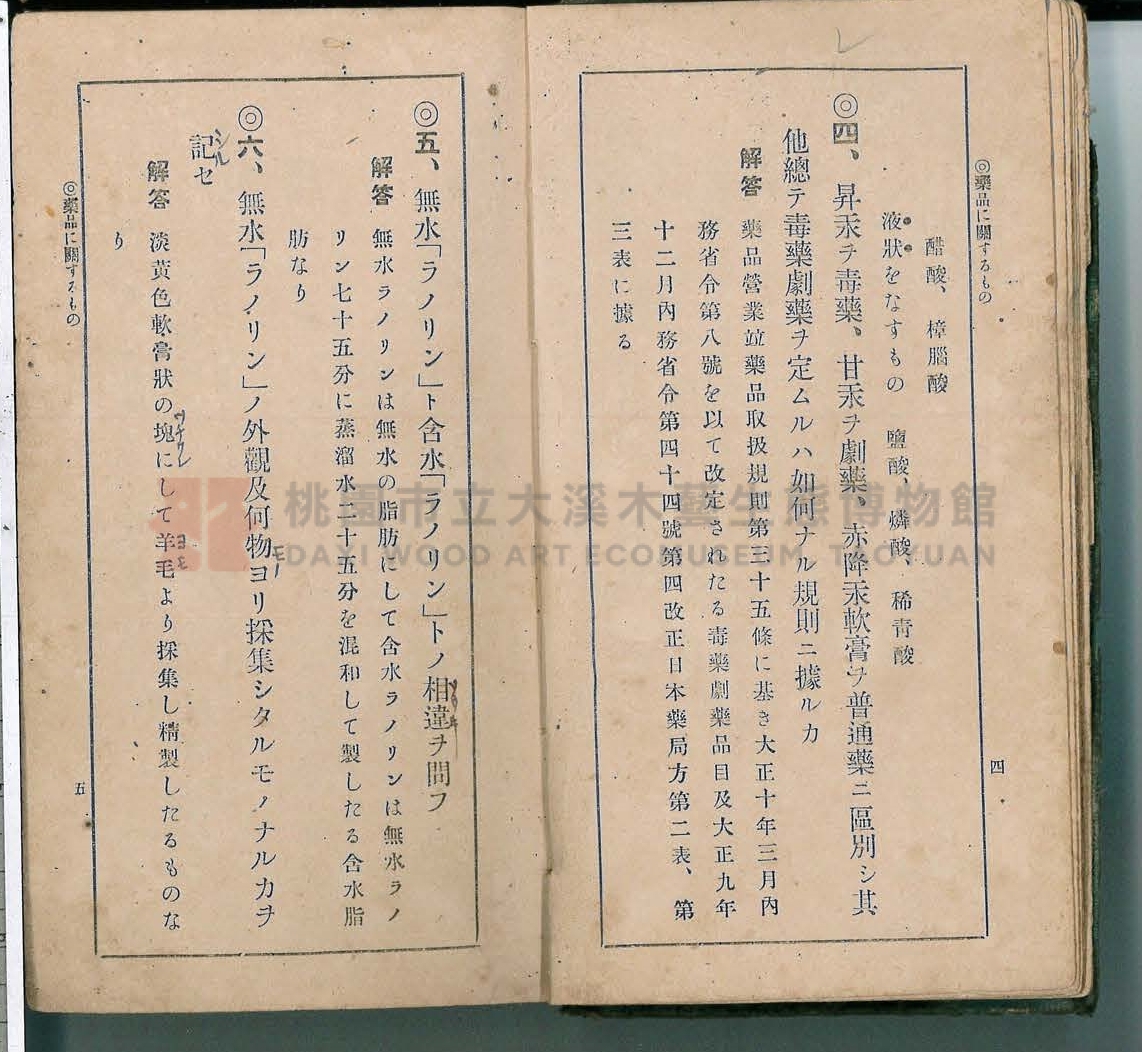 ◎藥品に關するもの
醋酸、樟腦酸
液狀をなすもの 鹽酸、燐酸、稀青酸
◎四、昇汞ヲ毒藥、甘汞ヲ劇藥、赤降汞軟膏ヲ普通藥ニ區別シ其
他總テ毒藥劇藥ヲ定ムルハ如何ナル規則ニ據ルカ
解答 藥品營業竝藥品取扱規則第三十五條に基き大正十年三月內
務省令第八號を以て改定されたる毒藥劇藥品目及大正九年
十二月內務省令第四十四號第四改正日本藥局方第二表、第
三表に據る
四
◎五、無水「ラノリン」ト含水「ラノリン」トノ相違ヲ問フ
解答 無水ラノリンは無水の脂肪にして含水ラノリンは無水ラノ
リン七十五分に蒸溜水二十五分を混和して製したる含水脂
肪なり
◎六、無水「ラノリン」ノ外觀及何物ヨリ採集シタルモノナルカヲ
モノ
記セ
シル
解答 淡黃色軟膏狀の塊にして羊毛より採集し精製したるものな
り
◎藥品に關するもの
五
桃園市立大溪木藝生態博物館
DAXI WOOD ART ECOMUSEUM, TAOYUAN